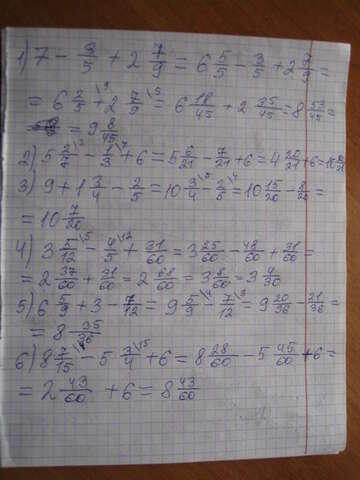 1) 7 - 3/5 + 2 7/9 = 6 5/5 - 3/5 + 2 7/9 =
= 6 2/5 \9 + 2 7/9 \5 = 6 18/45 + 2 35/45 = 8 53/45 =
= 9 8/45
2) 5 2/7 \3 - 1/3 \7 + 6 = 5 6/21 - 7/21 + 6 = 4 20/21 + 6 = 10 20/21
3) 9 + 1 3/4 - 2/5 = 10 3/4 \5 - 2/5 \4 = 10 15/20 - 8/20 =
= 10 7/20
4) 3 5/12 \5 - 4/5 \12 + 31/60 = 3 25/60 - 48/60 + 31/60 =
= 2 37/60 + 31/60 = 2 68/60 = 3 8/60 = 3 4/30
5) 6 5/9 + 3 - 7/12 = 9 5/9 \4 - 7/12 \3 = 9 20/36 - 21/36 =
= 8 35/36
6) 8 7/15 \4 - 5 3/4 \15 + 6 = 8 28/60 - 5 45/60 + 6 =
= 2 43/60 + 6 = 8 43/60